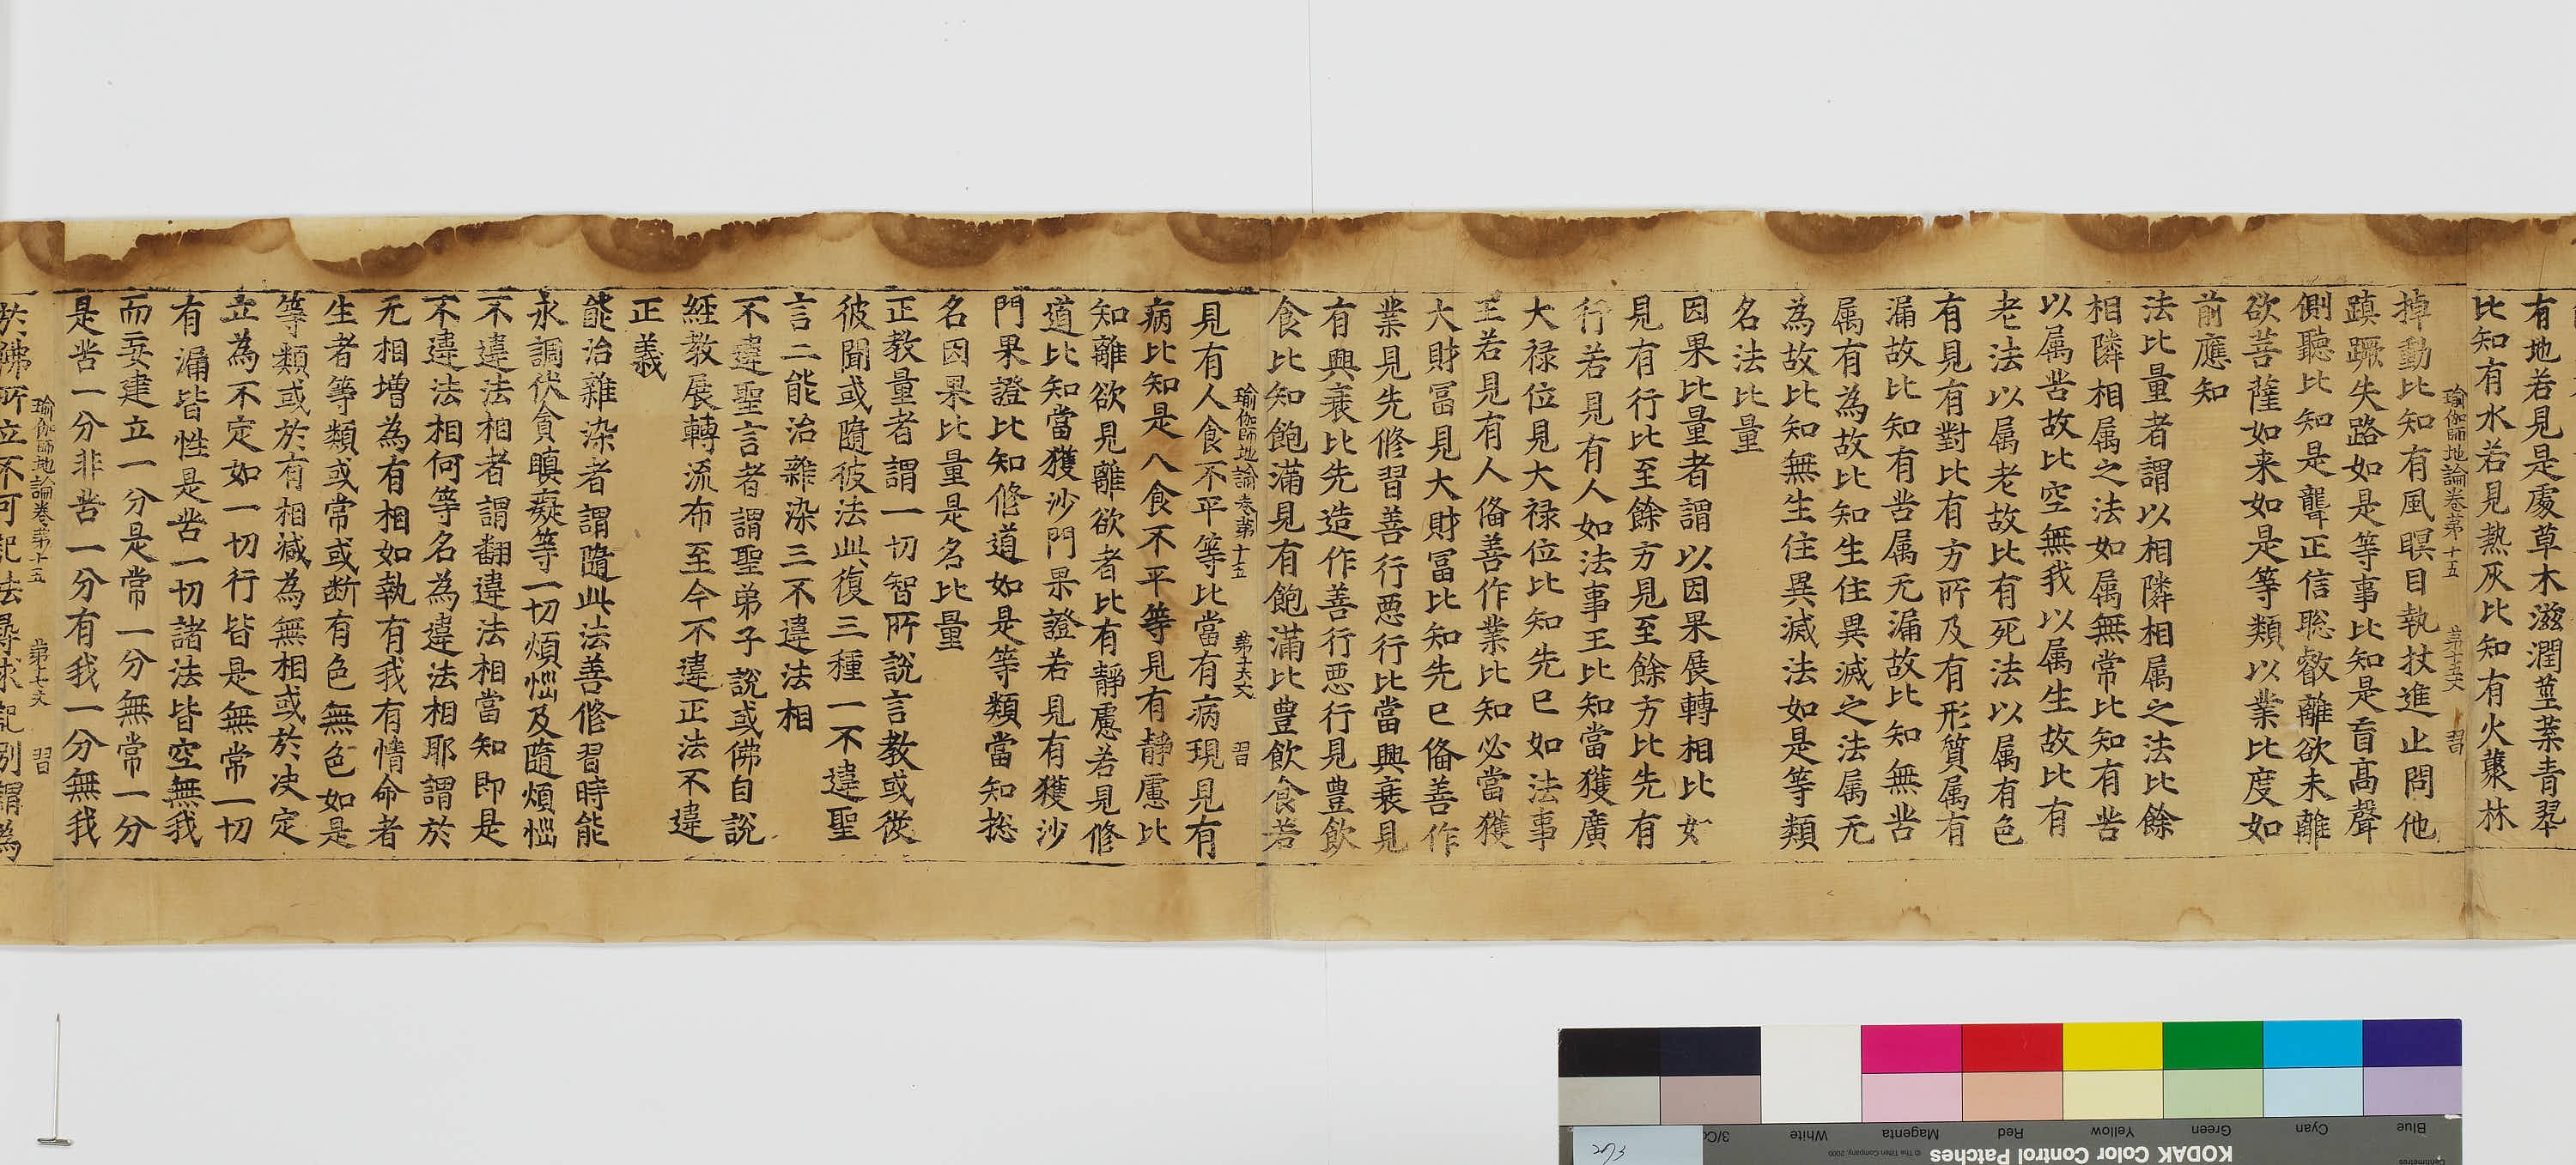 有地若見是處草木滋潤莖葉青翠
比知有水若見熱灰比知有火藂林
瑜伽師地論卷第十五 第十五丈 習
掉動比知有風瞑目執扙進止問他
蹎蹶失路如是等事比知是盲高聲
側聽比知是聾正信聡叡離欲未離
欲菩薩如来如是等類以業比度如
前應知
法比量者謂以相隣相属之法比餘
相隣相属之法如属無常比知有苦
以属苦故比空無我以属生故比有
老法以属老故比有死法以属有色
有見有對比有方所及有形質属有
漏故比知有苦属无漏故比知無苦
属有為故比知生住異滅之法属无
為故比知無生住異滅法如是等類
名法比量
因果比量者謂以因果展轉相比如
見有行比至餘方見至餘方比先有
行若見有人如法事王比知當獲廣
大禄位見大禄位比知先已如法事
王若見有人俻善作業比知必當獲
大財冨見大財冨比知先已俻善作
業見先修習善行惡行比當興衰見
有興衰比先造作善行惡行見豊飲
食比知飽滿見有飽滿比豊飲食若
瑜伽師地論卷第十五 第十六丈 習
見有人食不平等比當有病現見有
病比知是人食不平等見有靜慮比
知離欲見離欲者比有靜慮若見修
道比知當獲沙門果證若見有獲沙
門果證比知修道如是等類當知捴
名因果比量是名比量
正教量者謂一切智所說言教或從
彼聞或隨彼法此復三種一不違聖
言二能治雜染三不違法相
不違聖言者謂聖弟子說或佛自說
經教展轉流布至今不違正法不違
正義
能治雜染者謂隨此法善修習時能
永調伏貪瞋癡等一切煩惱及隨煩惱
不違法相者謂翻違法相當知即是
不違法相何等名為違法相耶謂於
无相增為有相如執有我有情命者
生者等類或常或断有色無色如是
等類或於有相減為無相或於决定
立為不定如一切行皆是無常一切
有漏皆性是苦一切諸法皆空無我
而妄建立一分是常一分無常一分
是苦一分非苦一分有我一分無我
瑜伽師地論卷第十五 第十七丈 習
於佛所立不可記法尋求記別謂為
KODAK Color Control Patches
© The Tiffen Company, 2000
Blue Cyan Green Yellow Red Magenta White 3/Co
Centimetres